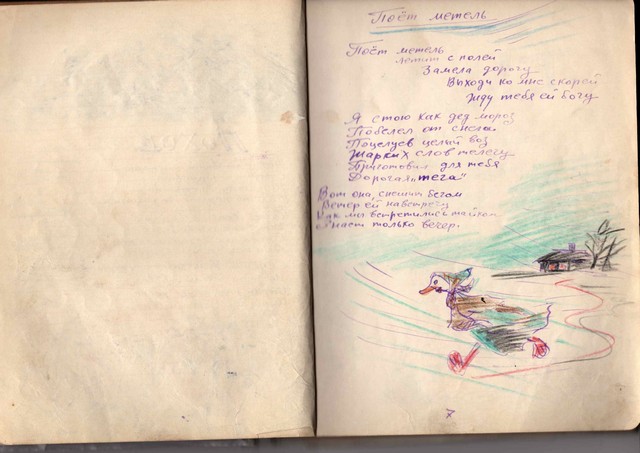 Поёт метель
Поёт метель
летит с полей
Замела дорогу
Выходи ко мне скорей
Жду тебя ей богу
Я стою как дед мороз
Побелел от снега
Поцелуев целый воз
Жарких слов телегу
Приготовил для тебя
Дорогая „тега"
Вот она, спешит бегом
Ветер ей навстречу
Как мы встретились тайком
Знает только вечер.
7